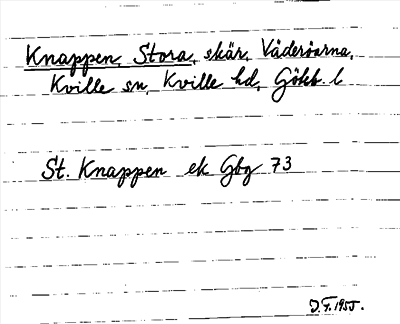 Knappen, Stora, skär, Väderöarna,
Kville sn, Kville hd, Gökb. l
St. Knappen ek Gbg 73
J.F. 1955.